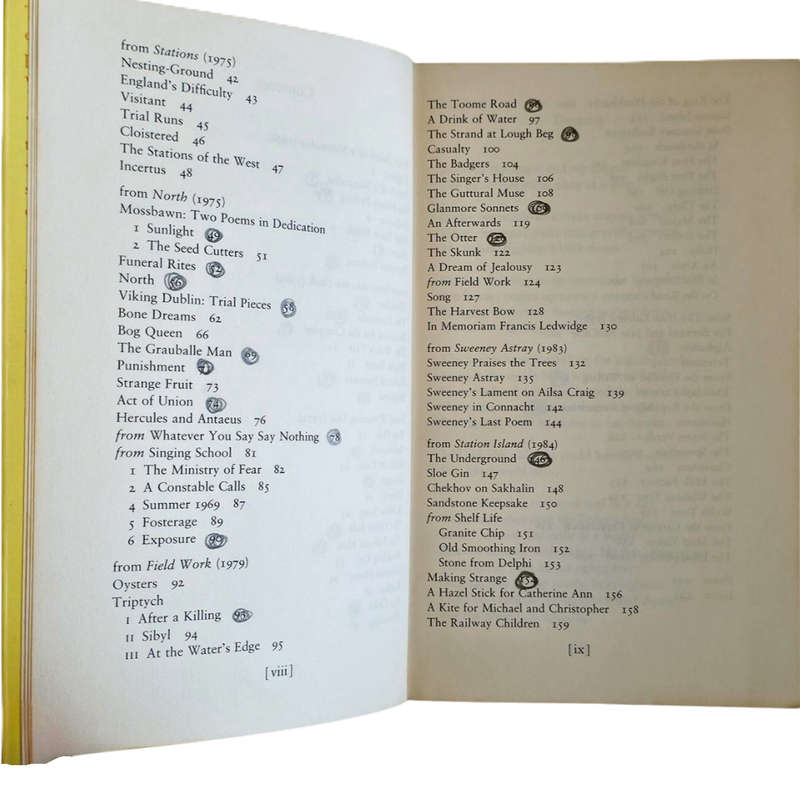 from Stations (1975)
Nesting-Ground 42
England's Difficulty 43
Visitant 44
Trial Runs 45
Cloistered 46
The Stations of the West 47
Incertus 48
from North (1975)
Mossbawn: Two Poems in Dedication
1 Sunlight 49
2 The Seed Cutters 51
Funeral Rites 52
North 56
Viking Dublin: Trial Pieces 58
Bone Dreams 62
Bog Queen 66
The Grauballe Man 69
Punishment
Strange Fruit 73
Act of Union 74
Hercules and Antaeus 76
from Whatever You Say Say Nothing 78
from Singing School 81
1 The Ministry of Fear 82
2 A Constable Calls 85
4 Summer 1969 87
5 Fosterage 89
6 Exposure
from Field Work (1979)
Oysters 92
Triptych
I After a Killing
II Sibyl 94
III At the Water's Edge 95
[viii]
The Toome Road
A Drink of Water 97
The Strand at Lough Beg
Casualty 100
The Badgers 104
The Singer's House 106
The Guttural Muse 108
Glanmore Sonnets 109
An Afterwards 119
The Otter
The Skunk 122
A Dream of Jealousy 123
from Field Work 124
Song 127
The Harvest Bow 128
In Memoriam Francis Ledwidge 130
from Sweeney Astray (1983)
Sweeney Praises the Trees 132
Sweeney Astray 135
Sweeney's Lament on Ailsa Craig 139
Sweeney in Connacht 142
Sweeney's Last Poem 144
from Station Island (1984)
The Underground 146
Sloe Gin 147
Chekhov on Sakhalin 148
Sandstone Keepsake 150
from Shelf Life
Granite Chip 151
Old Smoothing Iron 152
Stone from Delphi 153
Making Strange
A Hazel Stick for Catherine Ann 156
A Kite for Michael and Christopher 158
The Railway Children 159
[ix]